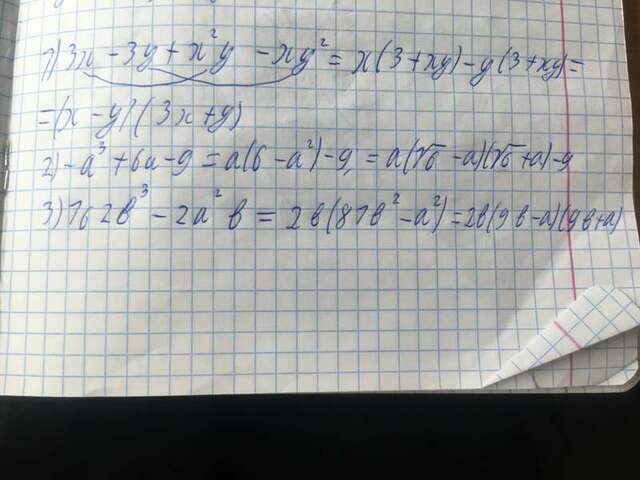 1) 3x - 3y + x²y - xy² = x(3 + xy) - y(3 + xy) =
= (x - y)(3x + y)
2) - a³ + 6a - 9 = a(6 - a²) - 9 = a(√6 - a)(√6 + a) - 9
3) 162b³ - 2a²b = 2b(81b² - a²) = 2b(9b - a)(9b + a)